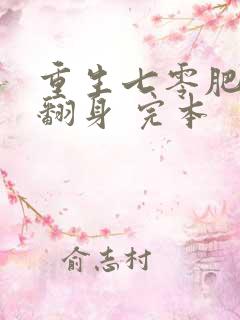 重生七零肥
翻身 完本
俞志村